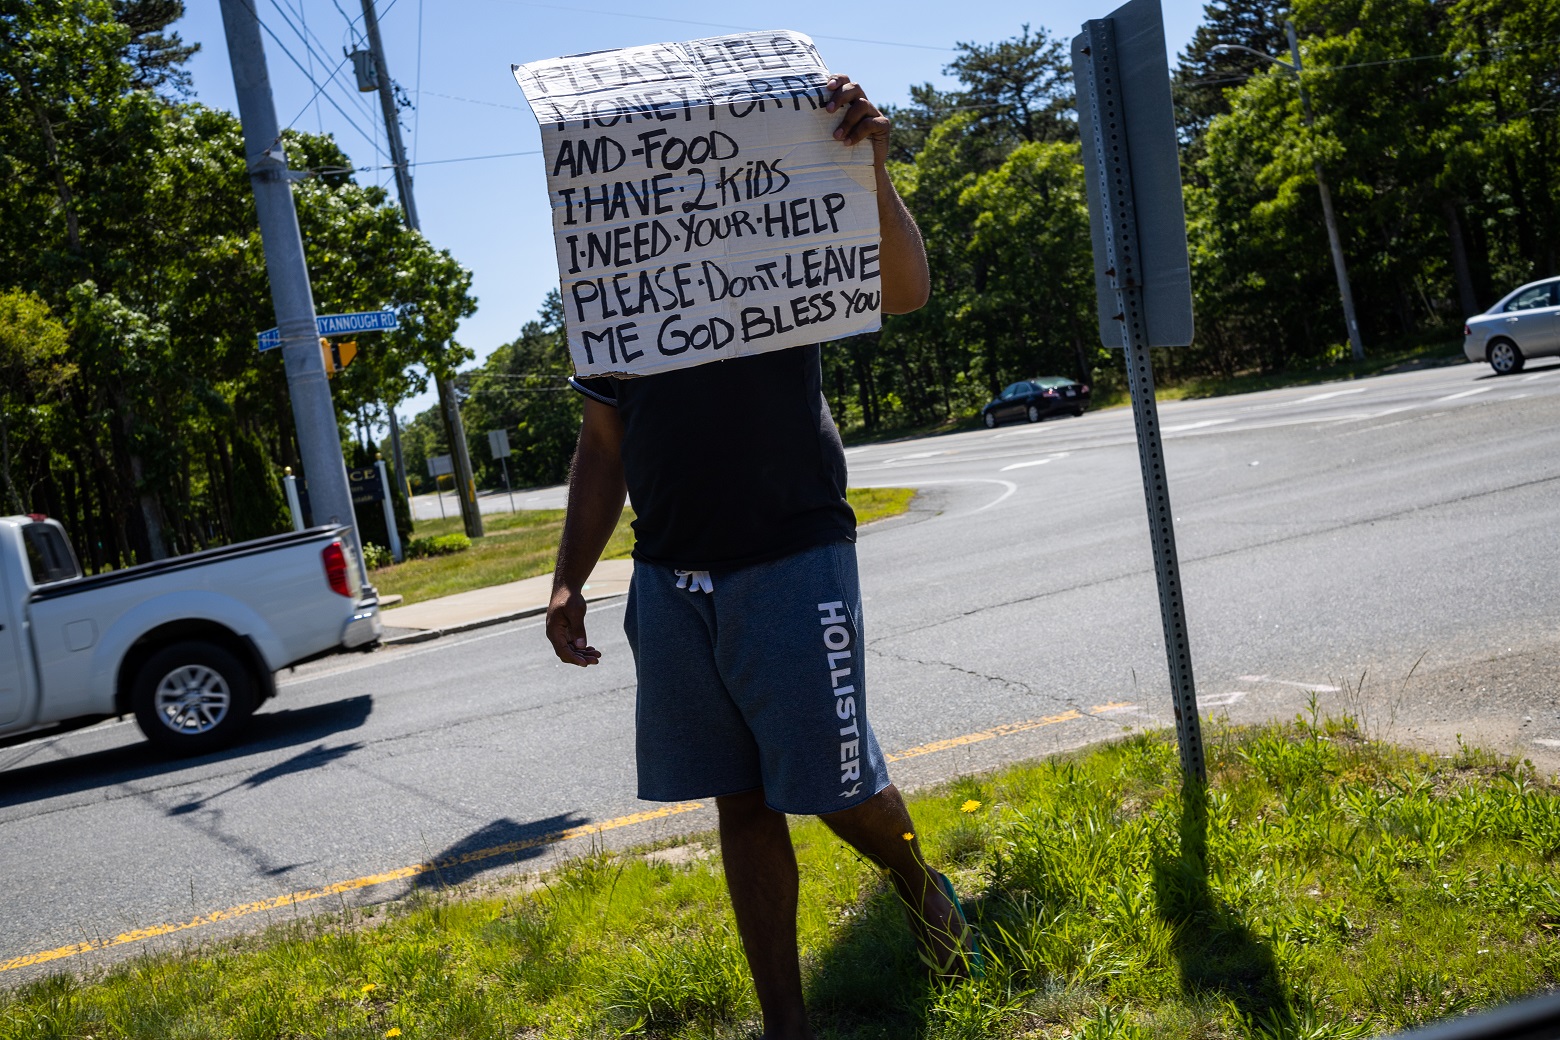 PLEASE HELP
MONEY·FOR
AND·FOOD
I·HAVE·2·KIDS
I·NEED·YOUR·HELP
PLEASE·DonT·LEAVE
ME GOD BLESS YOU
IYANNOUGH RD
HOLLISTER